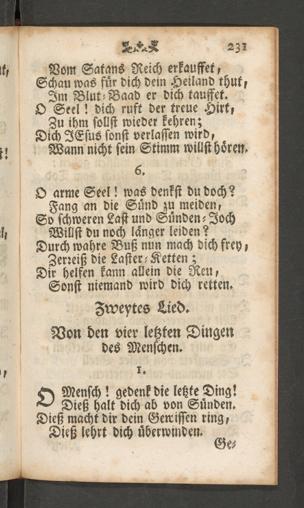 231
Vom Satans Reich erkauffet,
Schau was für dich dein Heiland thut,
Im Blut-Baad er dich tauffet.
O Seel! dich ruft der treue Hirt,
Zu ihm sollst wieder kehren;
Dich JEsus sonst verlassen wird,
Wann nicht sein Stimm willst hören.
6.
O arme Seel! was denkst du doch?
Fang an die Sünd zu meiden,
So schweren Last und Sünden-Joch
Willst du noch länger leiden?
Durch wahre Buß nun mach dich frey,
Zerreiß die Laster-Ketten;
Dir helfen kann allein die Reu,
Sonst niemand wird dich retten.
Zweytes Lied.
Von den vier letzten Dingen
des Menschen.
1.
O Mensch! gedenk die letzte Ding!
Dieß halt dich ab von Sünden.
Dieß macht dir dein Gewissen ring,
Dieß lehrt dich überwinden.
Ge-